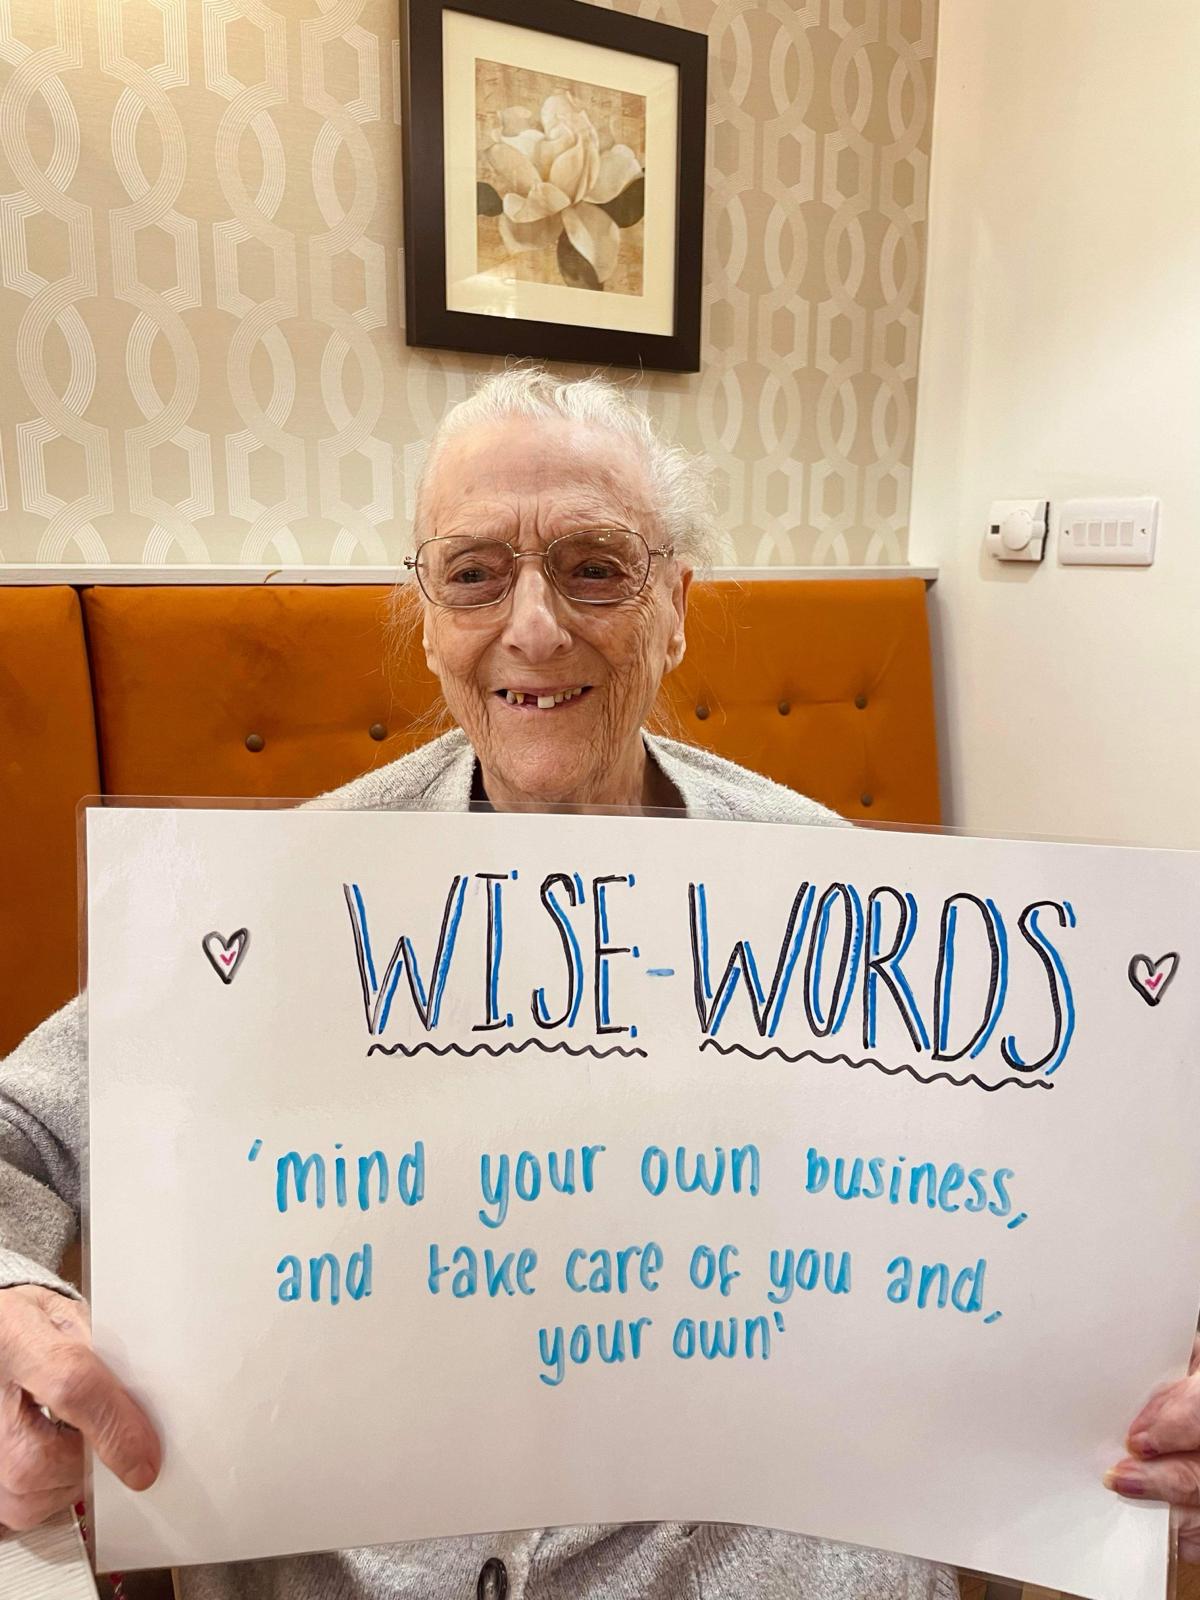 WISE-WORDS
'mind your own business,
and take care of you and,
your own'